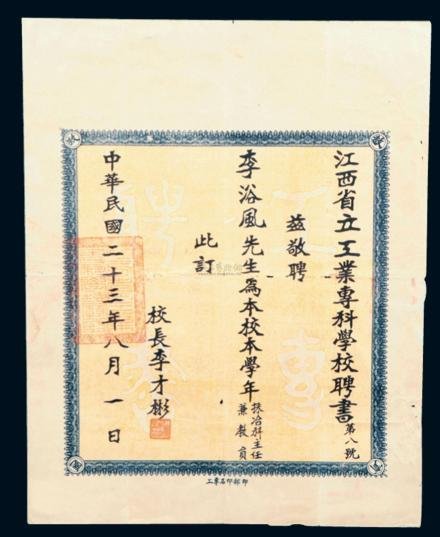 江西省立工業專科學校聘書第八號
茲敬聘
李浴風先生為本校本學年採冶科主任兼教員
此訂
校長李才彬
中華民國二十三年八月一日
工專石印部印